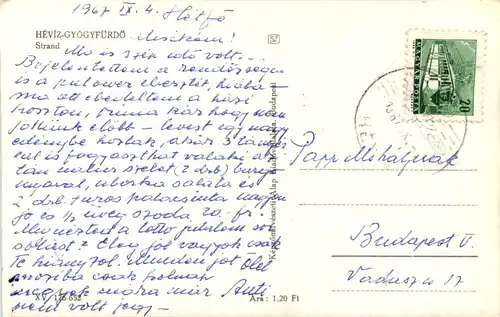 1967 IX. 4. Hétfő
HÉVÍZ-GYÓGYFÜRDŐ
Strand
Mucikám!
Ma is szép idő volt...
Bejelentettem a rendőrségen
is a pulover elvesztit, hiába -
ma ott ebédeltem a házi
koszton, finna kár hogy nem
jöttünk előbb - levest egy nagy
edénybe hoztak, akár 3 tányér
ral is fogyaszthat valaki, az
tán natur szelet (2 drb) burgo
nyával, uborka saláta és
2 drb. turos palacsinta nagyon
jó és ½ üveg szoda 20. ft.
Mi ujság a lotto
Elég jól vagyok csak
Te hiányzol. Minden jót Ölel
csak holnap
megyek mára már
nem volt jegy -
XV 176 652
Ára: 1,20 Ft
Képzőművészeti Alap Kiadóvállalata, Budapest
MAGYAR POSTA
20
HÉ
Papp Mihálynak
Budapest V.
Vadász u 17